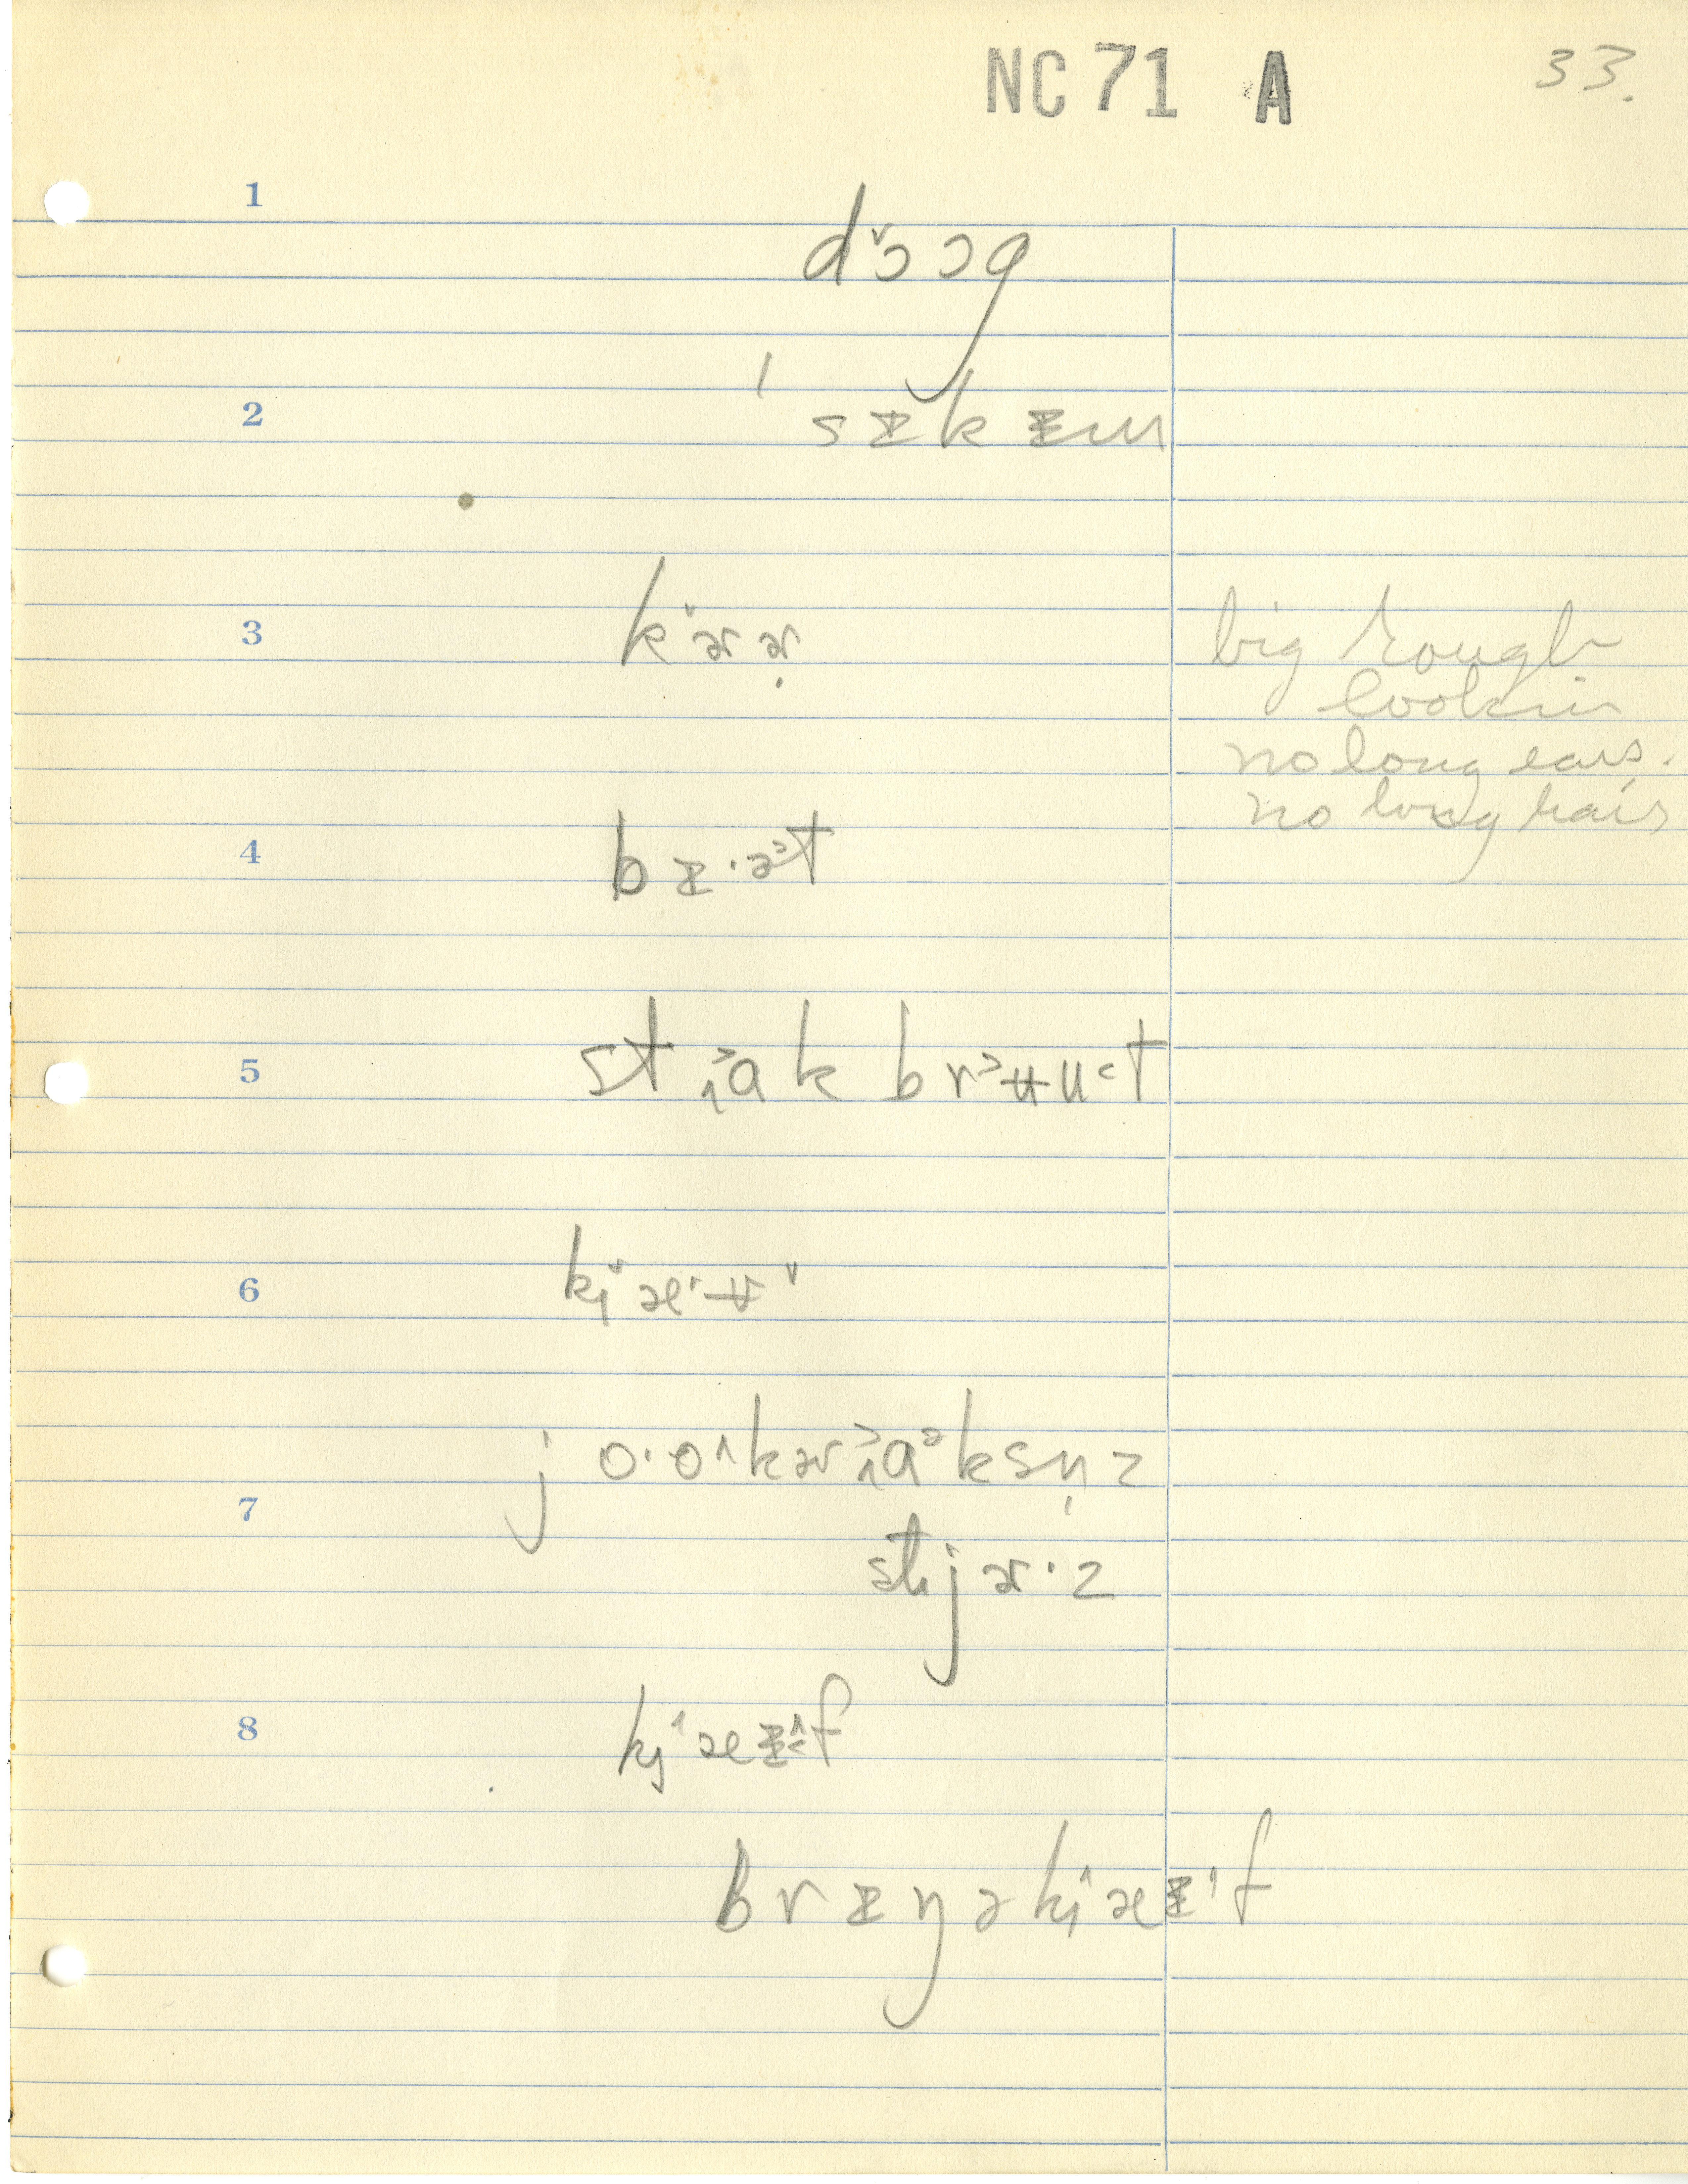 NC 71 A 33.
1
dɔ̌ɔg
2
ˈsɪkɪm
3
kɚ̌ɚ̣
big rough
lookin
no long ears.
no long hair
4
bɪ·ə˃t
5
stɑ˃k brʉ˃u˂t
6
kæ̌ʉ
7
jo·o^kɚɑ˃ksn̩z
stjɚ·z
8
kæɪf
brɪŋəkæɪf